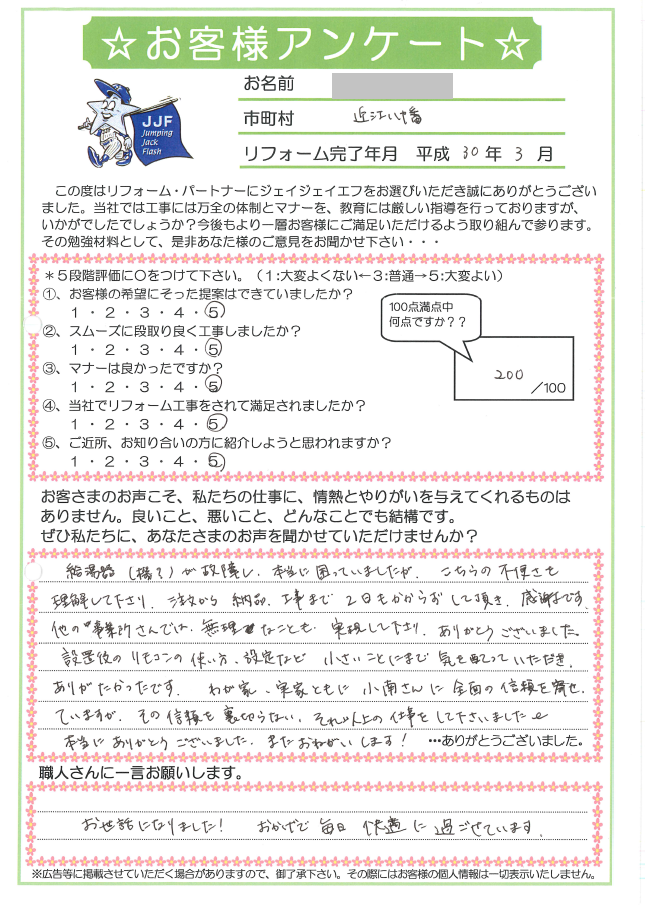 ☆お客様アンケート☆
JJF
Jumping
Jack
Flash
お名前
市町村 近江八幡
リフォーム完了年月 平成 30 年 3 月
この度はリフォーム・パートナーにジェイジェイエフをお選びいただき誠にありがとうござい
ました。当社では工事には万全の体制とマナーを、教育には厳しい指導を行っておりますが、
いかがでしたでしょうか？今後もより一層お客様にご満足いただけるよう取り組んで参ります。
その勉強材料として、是非あなた様のご意見をお聞かせ下さい・・・
＊５段階評価に○をつけて下さい。（１:大変よくない←３:普通→５:大変よい）
①、お客様の希望にそった提案はできていましたか？
１・２・３・４・５
②、スムーズに段取り良く工事しましたか？
１・２・３・４・５
③、マナーは良かったですか？
１・２・３・４・５
④、当社でリフォーム工事をされて満足されましたか？
１・２・３・４・５
⑤、ご近所、お知り合いの方に紹介しようと思われますか？
１・２・３・４・５
100点満点中
何点ですか？？
200
／100
お客さまのお声こそ、私たちの仕事に、情熱とやりがいを与えてくれるものは
ありません。良いこと、悪いこと、どんなことでも結構です。
ぜひ私たちに、あなたさまのお声を聞かせていただけませんか？
給湯器(機?)が故障し、本当に困っていましたが、こちらの不便さも
理解して下さり、注文から納品、工事まで2日もかからずして頂き、感謝です。
他の事業所さんでは、無理なことも、実現して下さり、ありがとうございました。
設置後のリモコンの使い方、設定など小さいことにまで気を配っていただき、
ありがたかったです。わが家、実家ともに小南さんに全面の信頼を寄せ
ていますが、その信頼を裏切らない、それ以上の仕事をして下さいました
本当にありがとうございました。またおねがいします! …ありがとうございました。
職人さんに一言お願いします。
お世話になりました! おかげで毎日快適に過ごせています。
※広告等に掲載させていただく場合がありますので、御了承下さい。その際にはお客様の個人情報は一切表示いたしません。